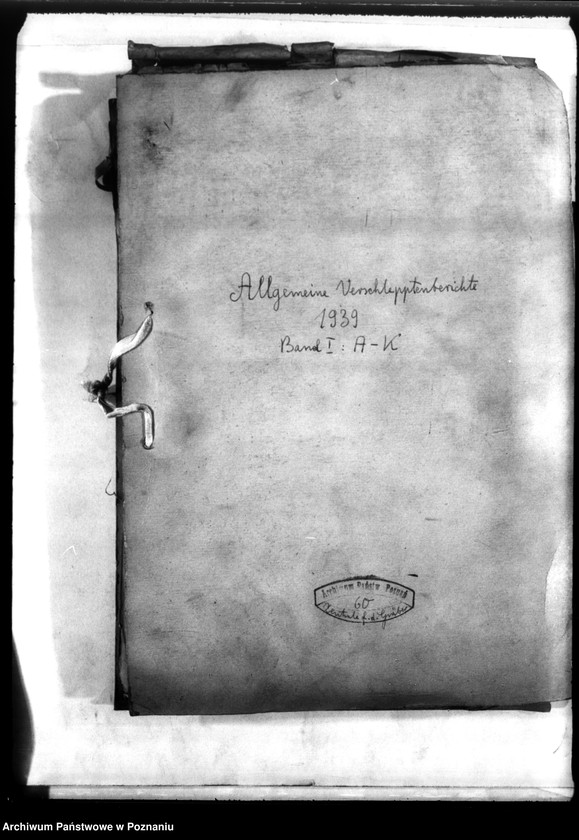 Allgemeine Verschlepptenberichte
1939
Band I: A-K
Archiwum Państw. Poznań
60
Zentrale f. d. Gräber
Archiwum Państwowe w Poznaniu